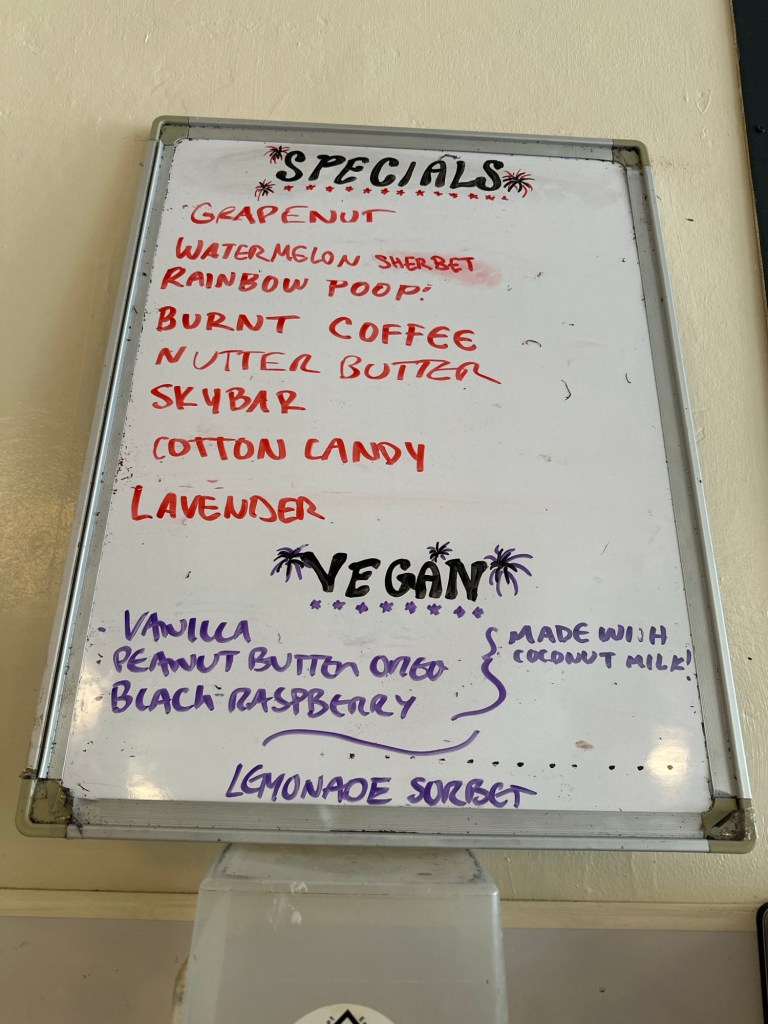 SPECIALS
GRAPENUT
WATERMELON SHERBET
RAINBOW POOP!
BURNT COFFEE
NUTTER BUTTER
SKYBAR
COTTON CANDY
LAVENDER
VEGAN
· VANILLA
· PEANUT BUTTER OREO
· BLACK RASPBERRY
MADE WITH
COCONUT MILK!
LEMONADE SORBET